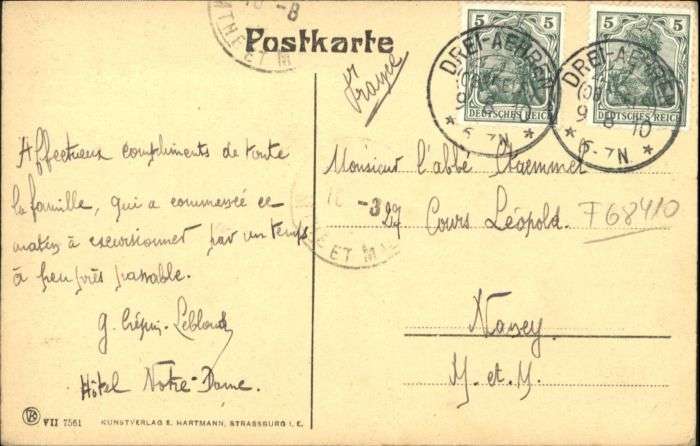 Postkarte
5 5
DEUTSCHES REICH
5 5
DEUTSCHES REICH
DREI-AEHREN
9 8 10
* 6-7N *
DREI-AEHREN
9 8 10
* 6-7N *
France
Affectueux compliments de toute
la famille, qui a commencé ce
matin à excursionner par un temps
à peu près passable.
g. Crépin-Leblond
Hôtel Notre-Dame.
Monsieur l'abbé
27 Cours Léopold.
F68410
Nancy
M. et M.
-8
ET M
VII 7561 KUNSTVERLAG E. HARTMANN, STRASSBURG I. E.